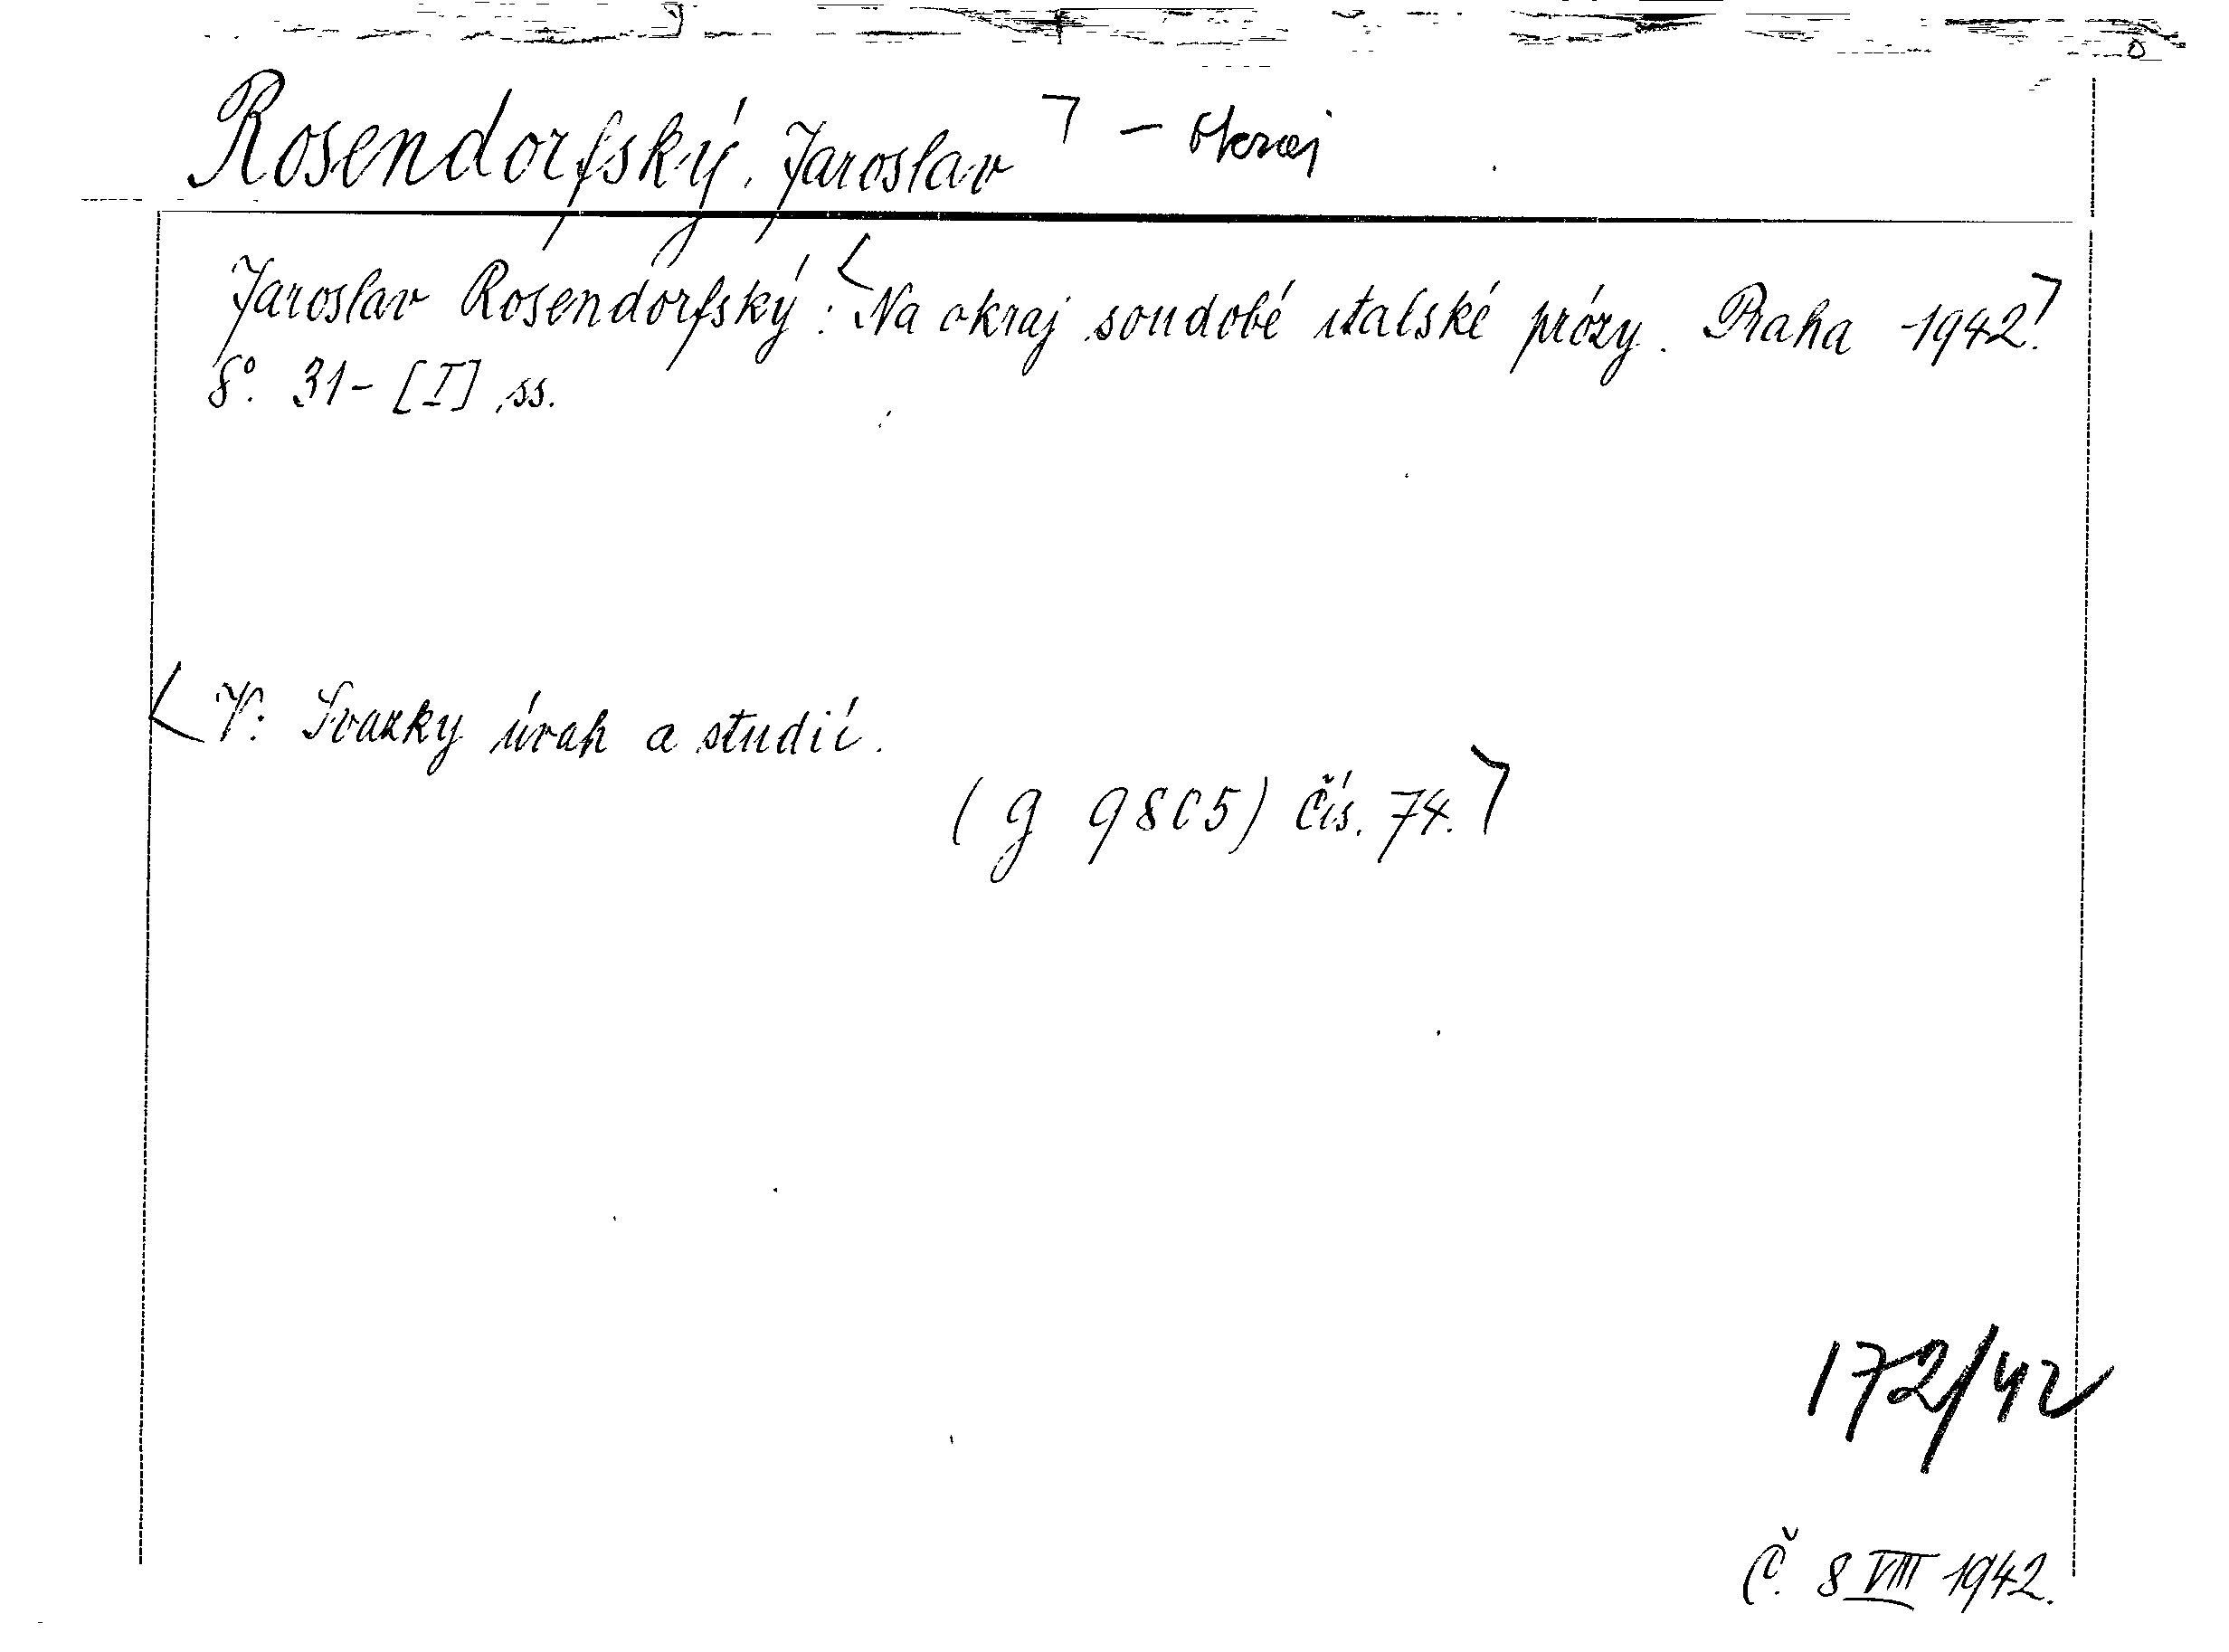 Rosendorfský, Jaroslav ⌝ - okraj
Jaroslav Rosendorfský: <Na okraj soudobé italské prózy. Praha 1942.⌝
8°. 31-[I] ss.
<V: Svazky úvah a studií.
(g 9805) čís. 74.⌝
172/42
Č. 8 VIII 1942.